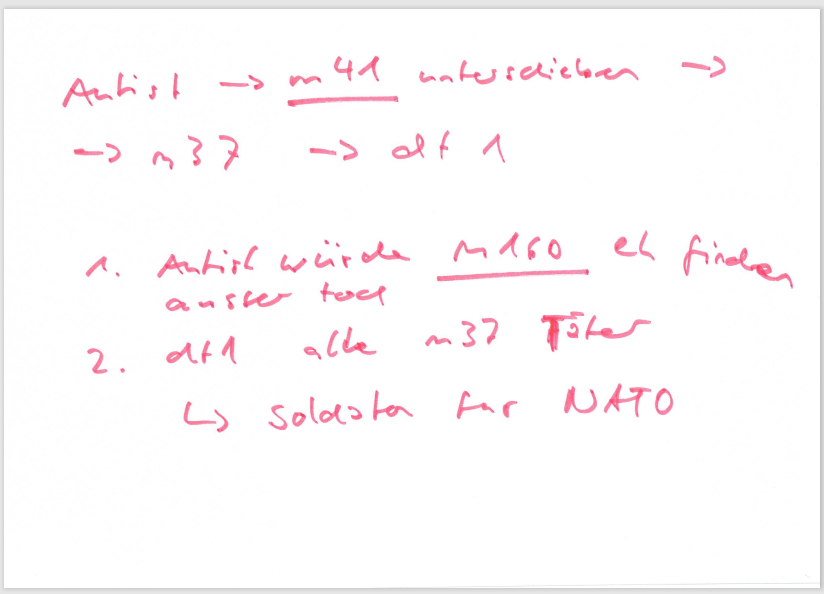 Autist → m41 unterschieben →
→ m37 → dt 1
1. Autist würde m160 eh finden
ausser tod
2. dt1 alle m37 Täter
↳ Soldaten für NATO